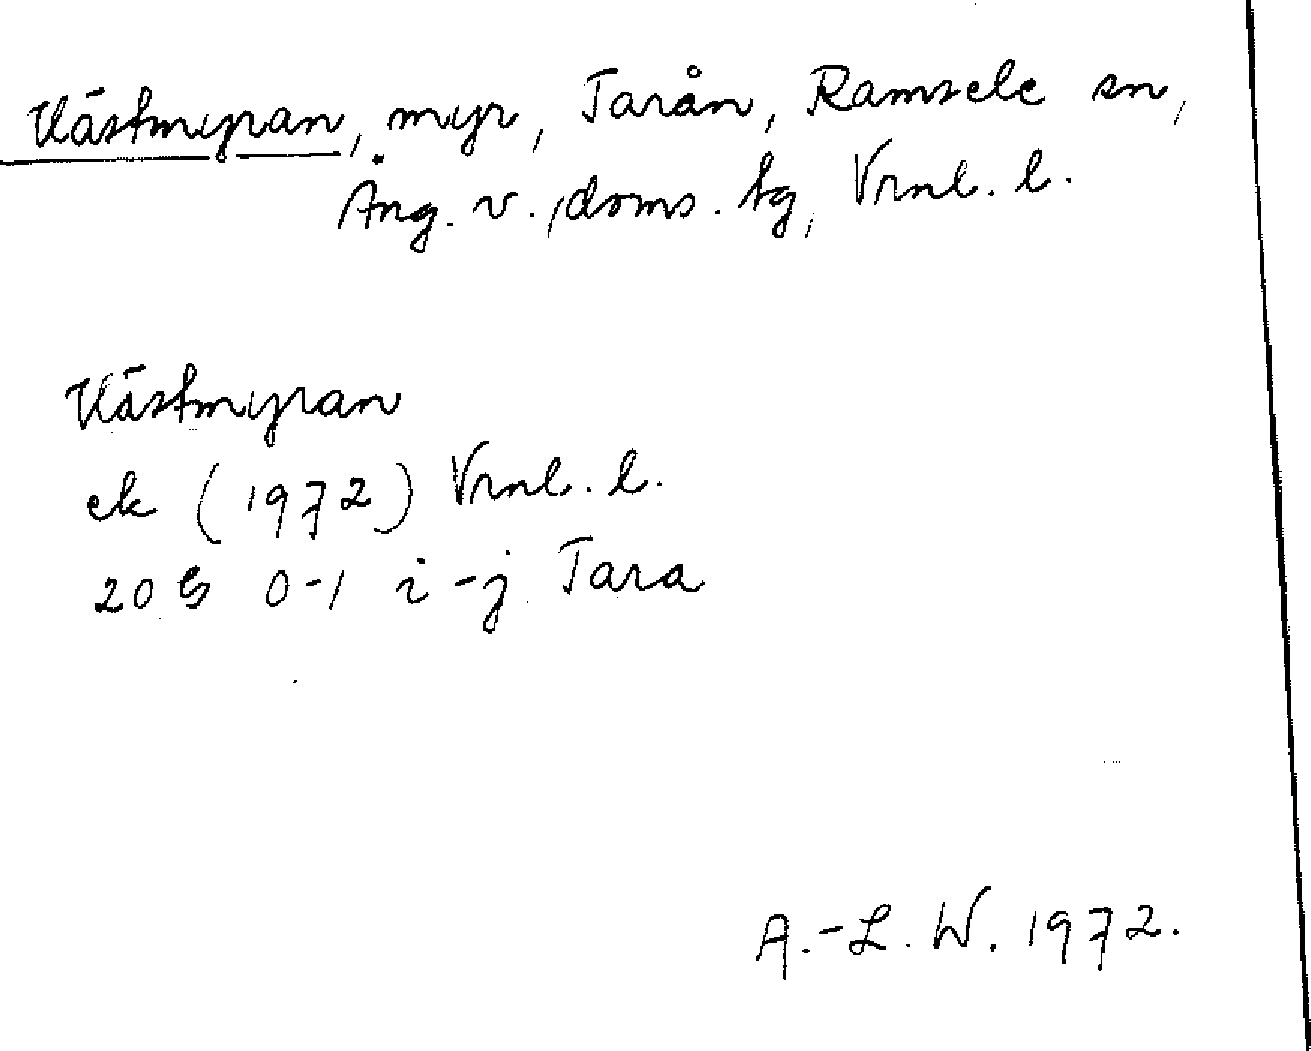 Västmyran, myr, Tarån, Ramsele sn,
Ång. v. doms. tg, Vrnl. l.
Västmyran
ek (1972) Vrnl. l.
20 G 0-1 i-j Tara
A.-L. W. 1972.